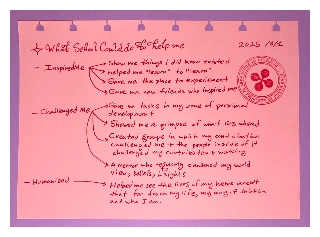 What School Could do To help me
2025 /8/1
- Inspired Me
Show me things I did know existed
helped me "learn" to "learn"
Gave me the place to experiment
Gave me new friends who inspired me
- Challenged Me
Gave me tasks in my zone of proximal
development
Showed me a glimpse of what lies ahead
Created groups in which my contribution
challenged me & the people inside of it
challenged my contribution & working
A mentor who regularly challenged my world
views, beliefs, insights
- Humanized
Helped me see the lives of my heroes aren't
that far from my life, my way of thinking
and who I am.